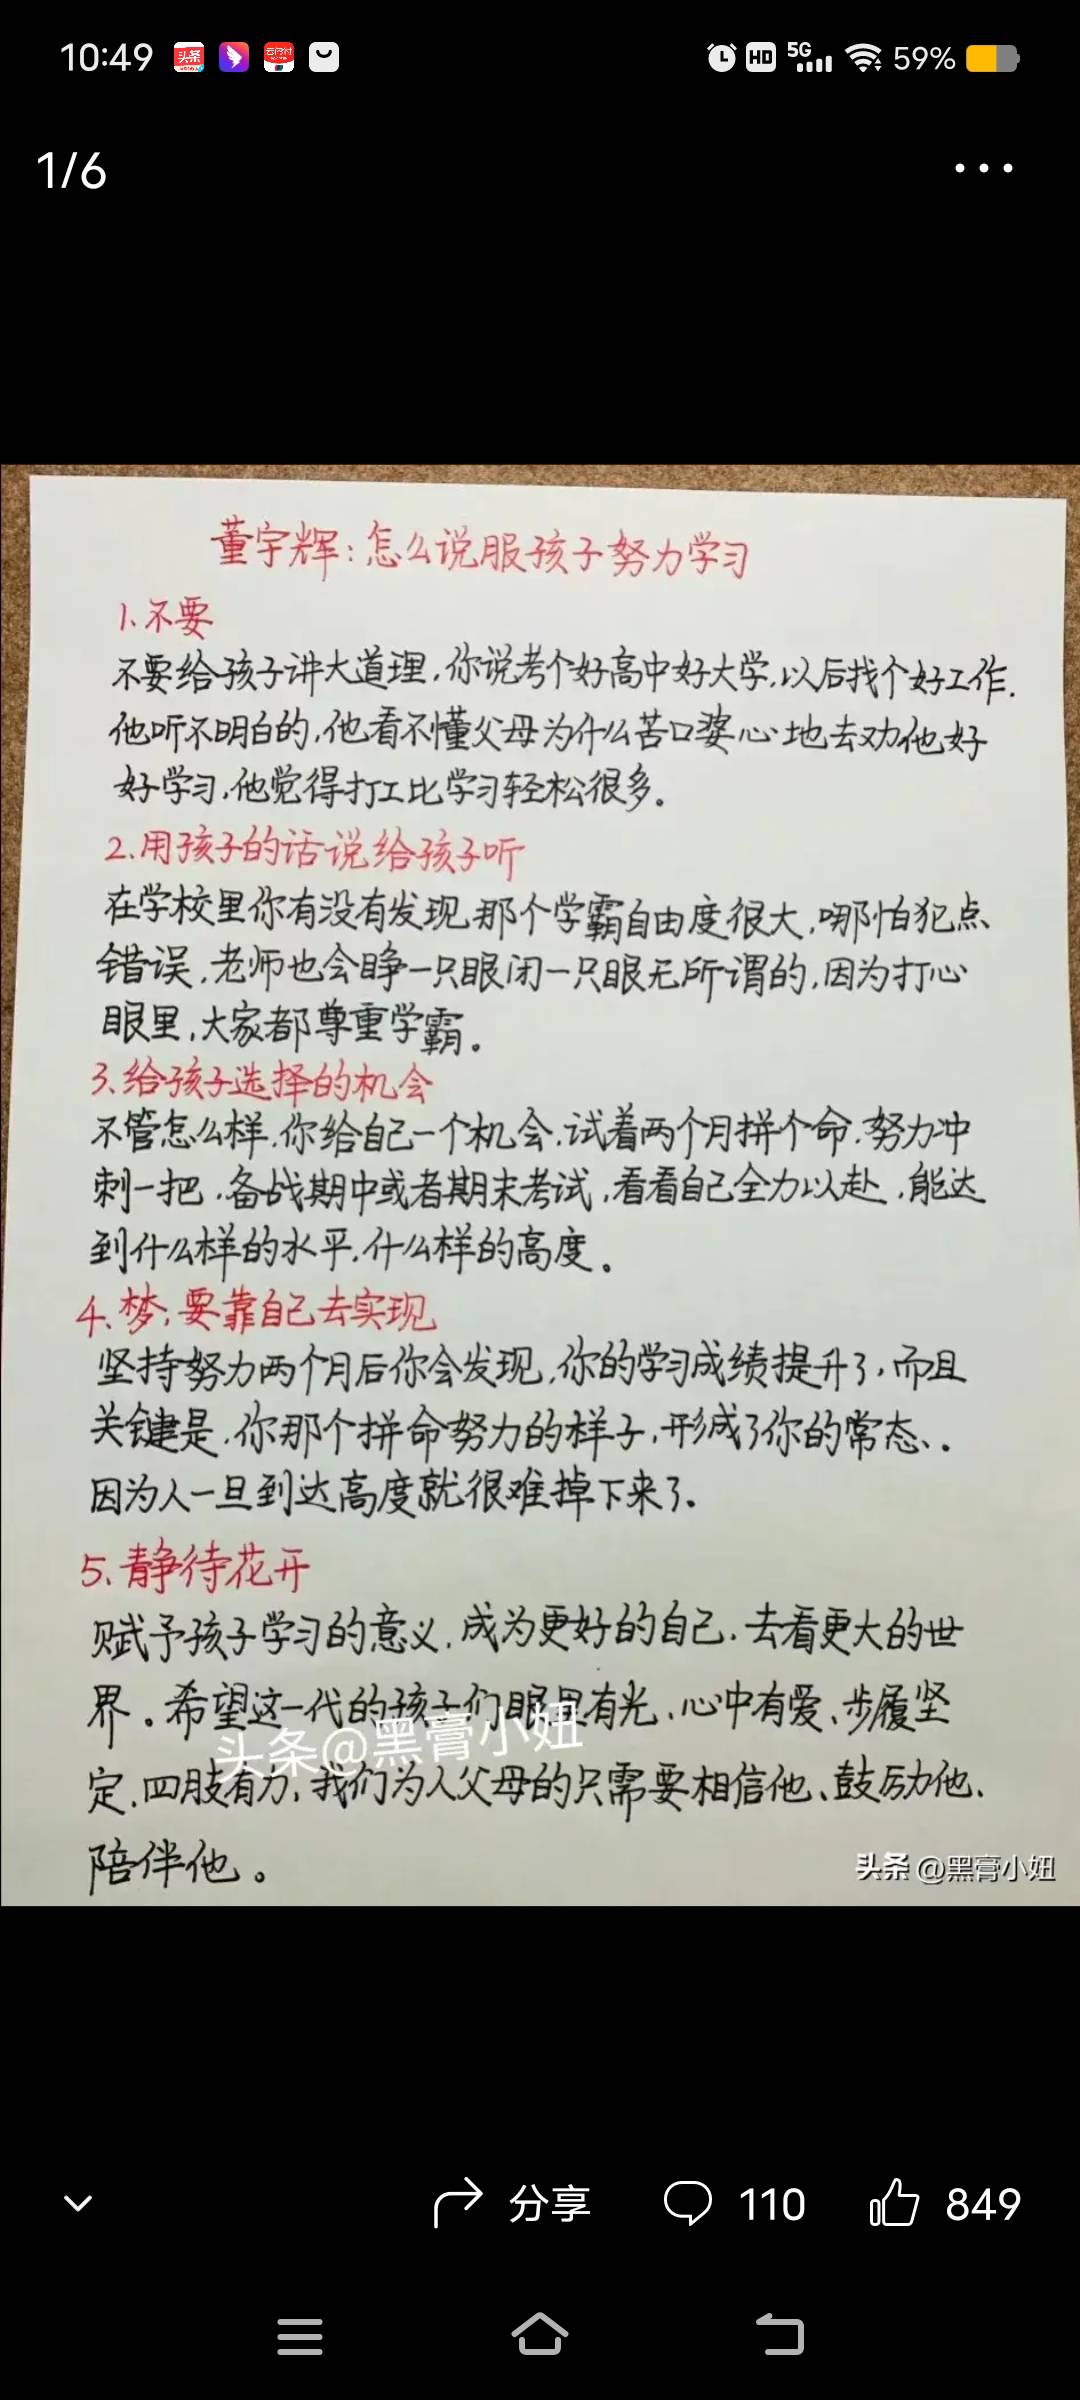 10:49
头条
云闪付
HD
5G
59%
1/6
董宇辉:怎么说服孩子努力学习
1.不要
不要给孩子讲大道理,你说考个好高中好大学,以后找个好工作.
他听不明白的,他看不懂父母为什么苦口婆心地去劝他好
好学习,他觉得打工比学习轻松很多。
2.用孩子的话说给孩子听
在学校里你有没有发现,那个学霸自由度很大,哪怕犯点
错误,老师也会睁一只眼闭一只眼无所谓的,因为打心
眼里,大家都尊重学霸。
3、给孩子选择的机会
不管怎么样,你给自己一个机会,试着两个月拼个命,努力冲
刺一把,备战期中或者期末考试,看看自己全力以赴,能达
到什么样的水平,什么样的高度。
4、梦,要靠自己去实现
坚持努力两个月后你会发现,你的学习成绩提升了,而且
关键是,你那个拼命努力的样子,形成了你的常态、.
因为人一旦到达高度就很难掉下来了.
5、静待花开
赋予孩子学习的意义,成为更好的自己,去看更大的世
界。希望这一代的孩子们眼里有光、心中有爱、步履坚
定,四肢有力,我们为人父母的只需要相信他、鼓励他、
陪伴他。
头条@黑膏小妞
头条 @黑膏小妞
分享
110
849